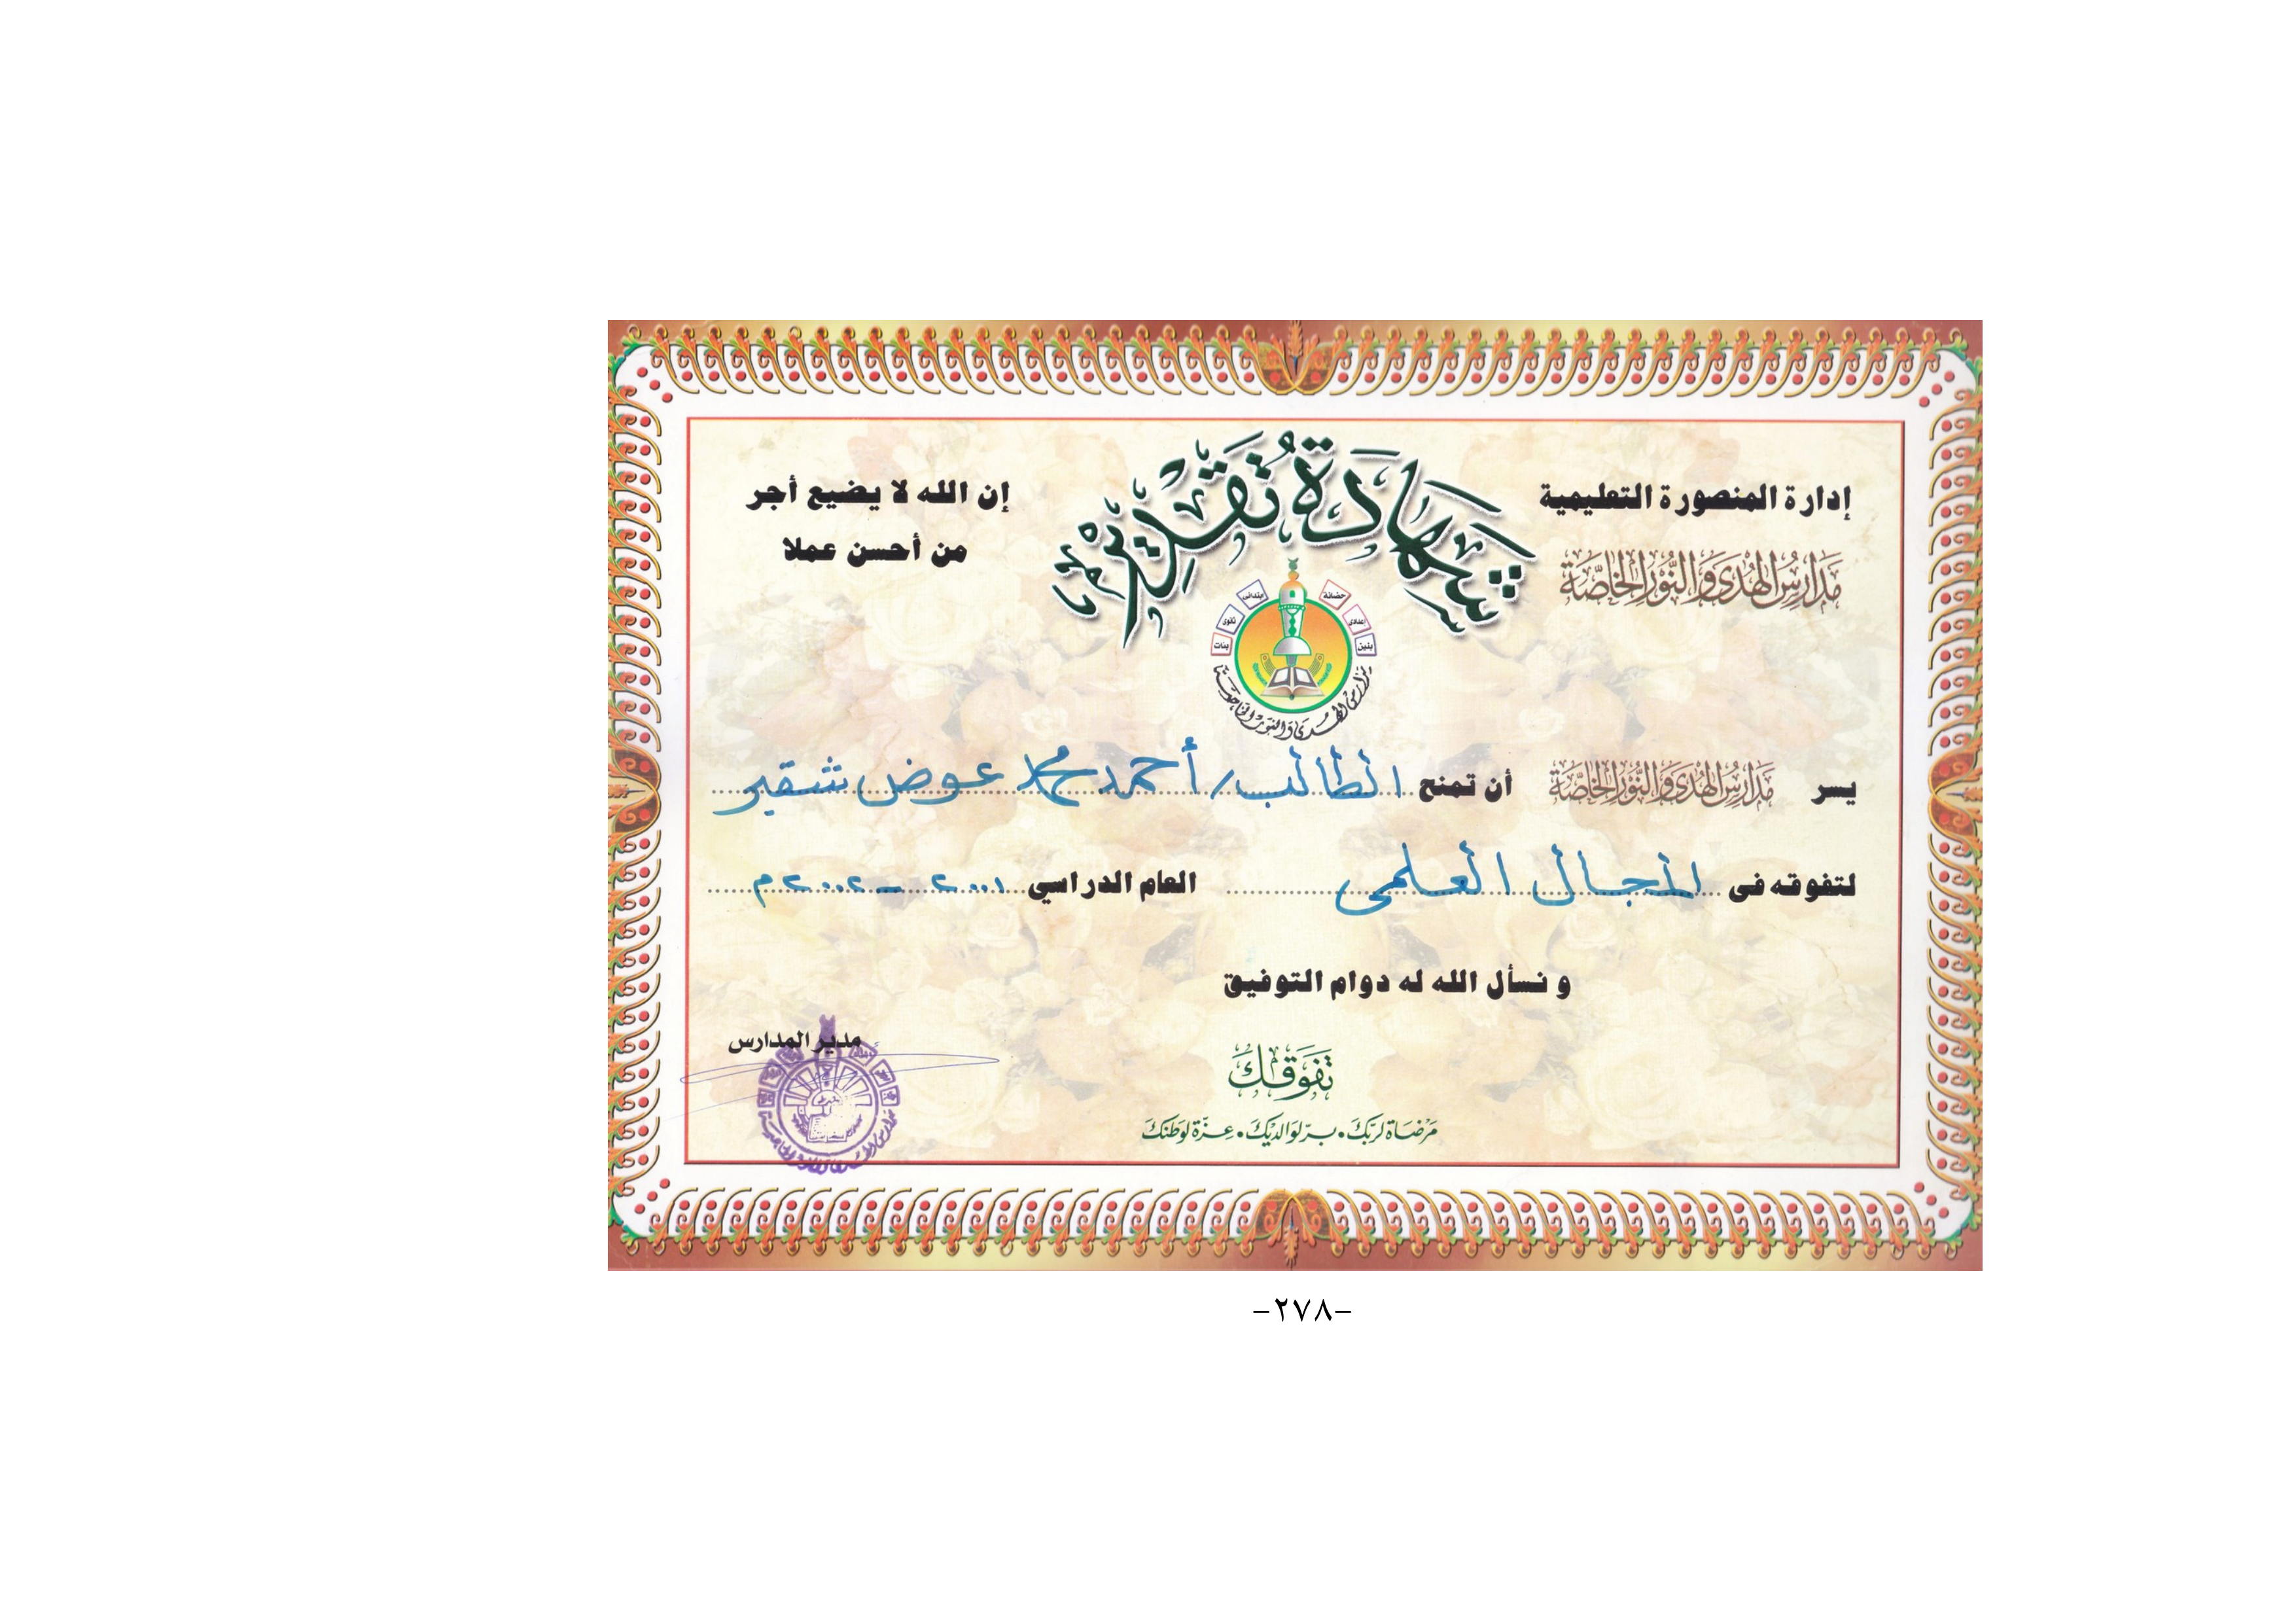 إدارة المنصورة التعليمية
مدارس الهدى والنور الخاصة
شهادة تقدير
إن الله لا يضيع أجر
من أحسن عملا
حضانة
ابتدائى
اعدادى
ثانوى
بنين
بنات
مدارس الهدى والنور الخاصة
يسر مدارس الهدى والنور الخاصة أن تمنح الطالب/ أحمد محمد عوض شقير
لتفوقه فى المجال العلمى العام الدراسي ٢٠٠١ - ٢٠٠٢م
و نسأل الله له دوام التوفيق
مدير المدارس
تفوقك
مرضاة لربك • بر لوالديك • عزة لوطنك
-٢٧٨-